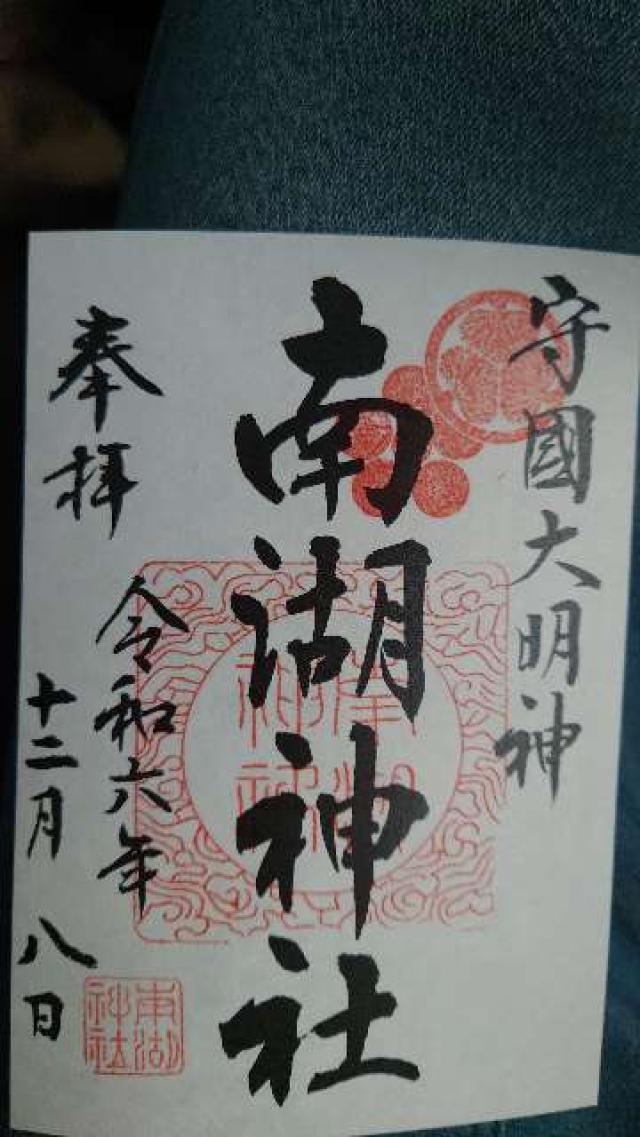 守國大明神
南湖神社
奉拝
令和六年
十二月八日
南湖神社
南湖神社